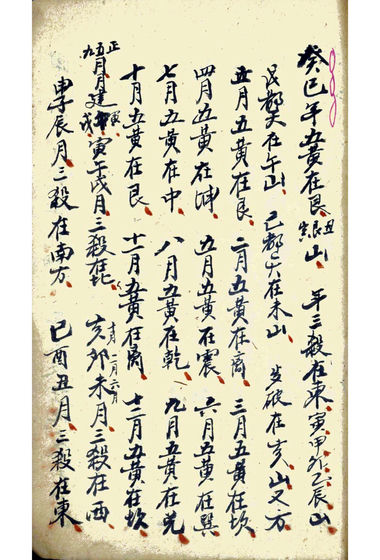 癸巳年五黄在艮丑艮寅山 年三殺在東寅甲卯乙辰山
戊都天在午山 己都天在未山 歲破在亥山又方
正月五黄在艮 二月五黄在离 三月五黄在坎
四月五黄在坤 五月五黄在震 六月五黄在巽
七月五黄在中 八月五黄在乾 九月五黄在兌
十月五黄在艮 十一月五黄在离 十二月五黄在坎
正五九月月建寅午戌月三殺在北 十月二月六月亥卯未月三殺在西
申子辰月三殺在南方 巳酉丑月三殺在東